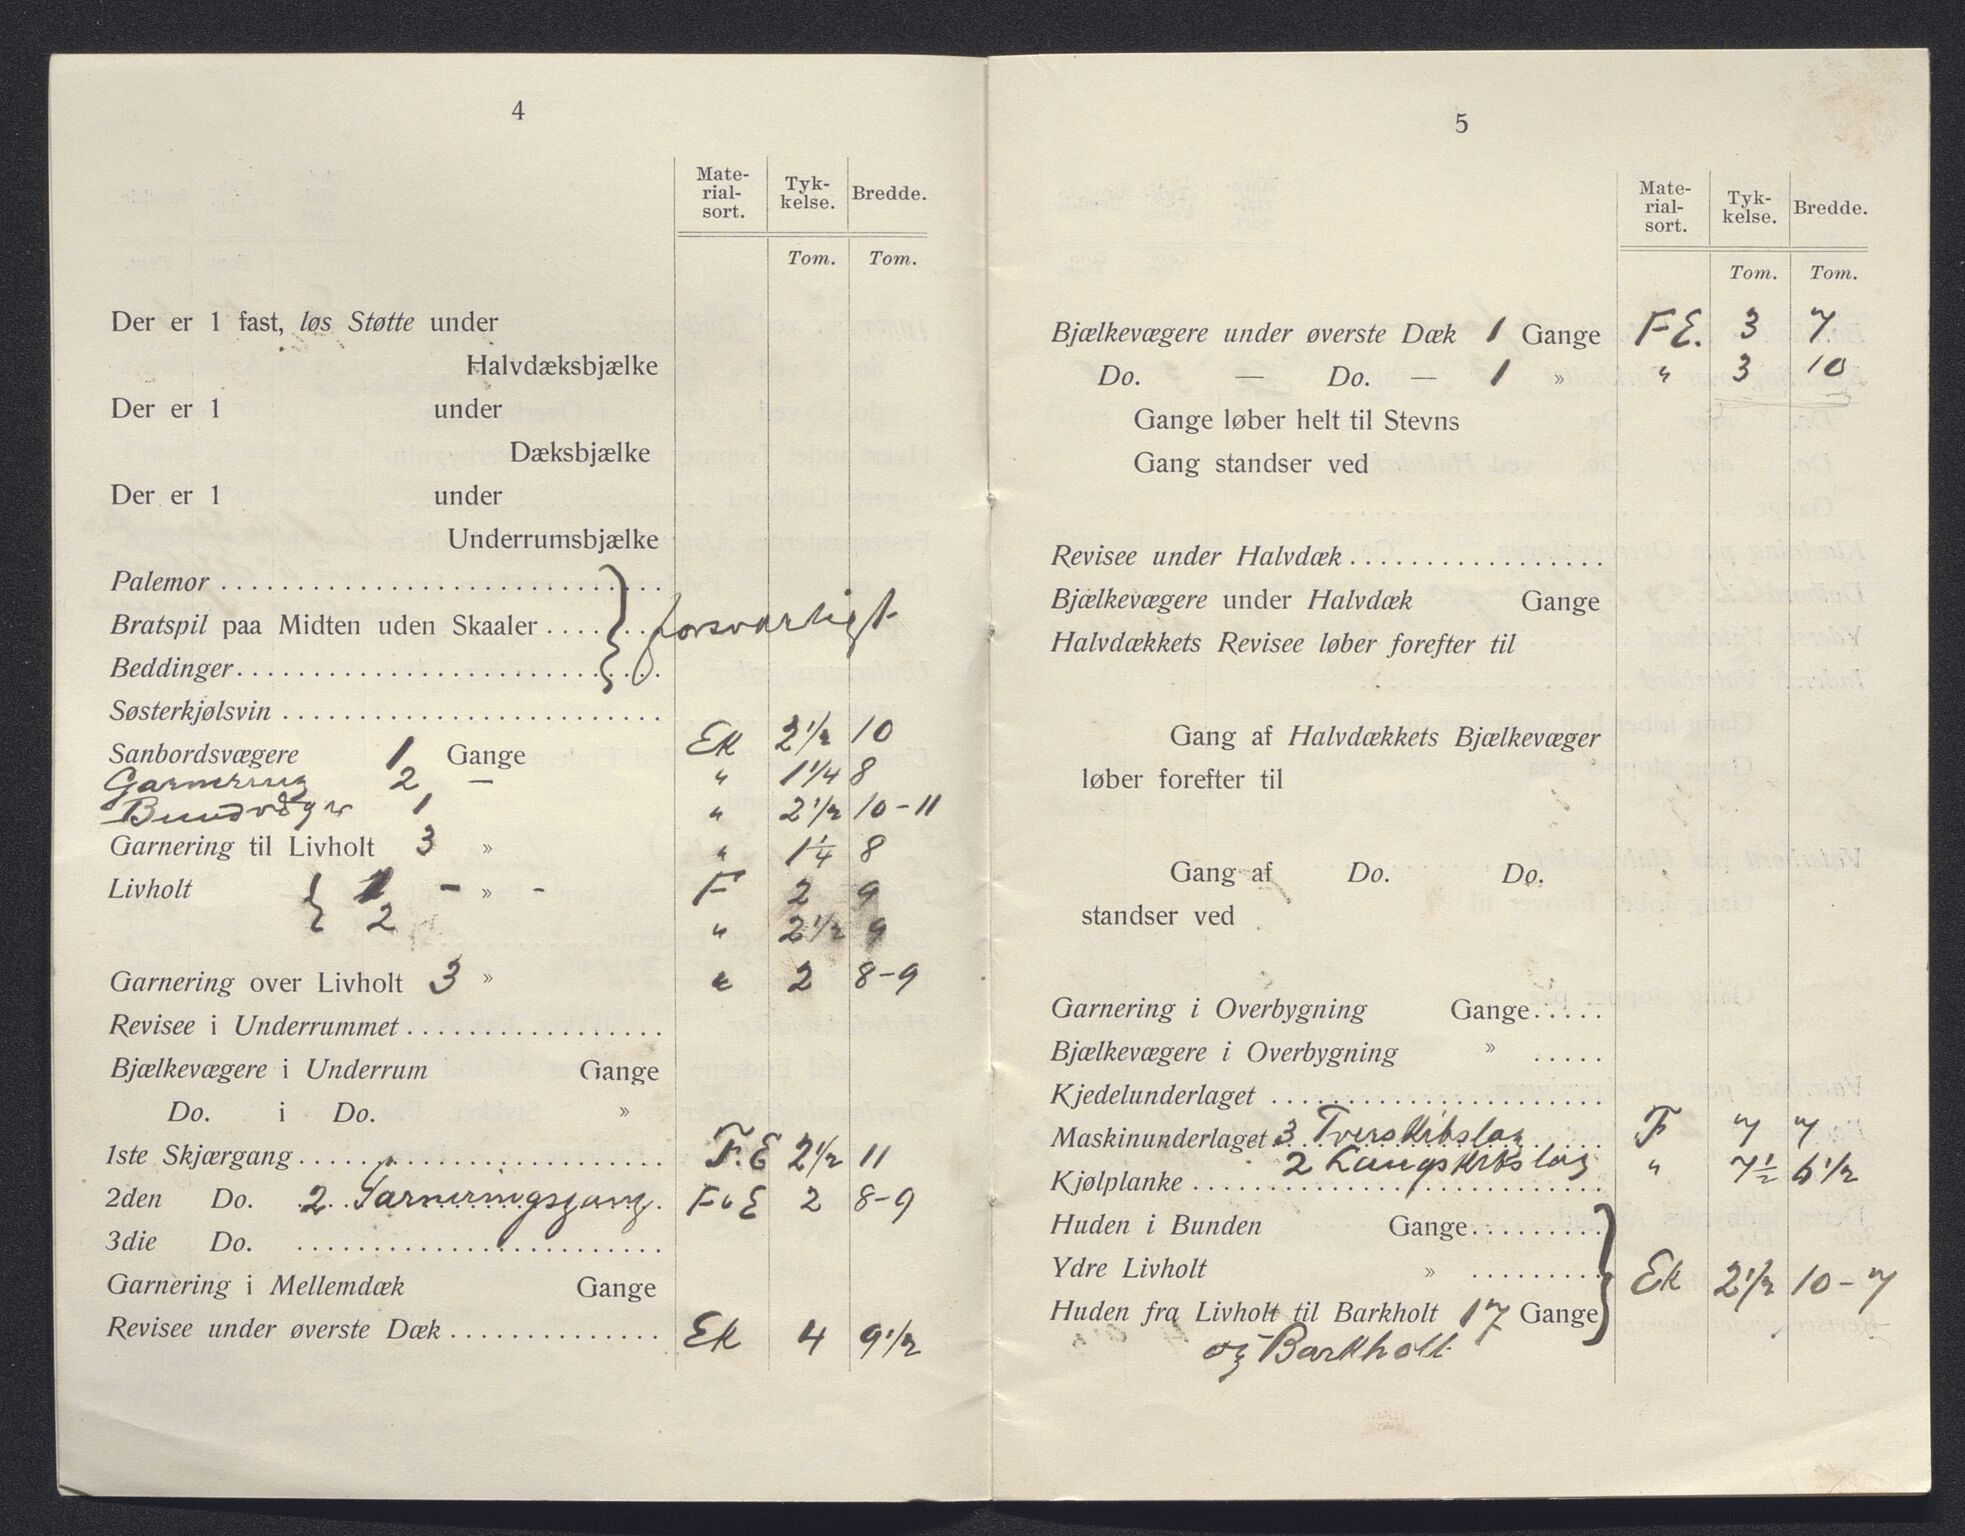 4
Mate-
rial-
sort.
Tyk-
kelse.
Bredde.
Tom. Tom.
Der er 1 fast, løs Støtte under
Halvdæksbjælke
Der er 1 under
Dæksbjælke
Der er 1 under
Underrumsbjælke
Palemor
Bratspil paa Midten uden Skaaler } forsvarligt
Beddinger
Søsterkjølsvin
Sanbordsvægere 1 Gange Ek 2 1/2 10
Garnering 2 — " 1 1/4 8
Bundvæger 1 " 2 1/2 10-11
Garnering til Livholt 3 » " 1 1/4 8
Livholt { 1 - » - F 2 9
2 " 2 1/2 9
Garnering over Livholt 3 » " 2 8-9
Revisee i Underrummet
Bjælkevægere i Underrum Gange
Do. i Do. »
1ste Skjærgang F.E 2 1/2 11
2den Do. 2 Garneringsgang F & E 2 8-9
3die Do.
Garnering i Mellemdæk Gange
Revisee under øverste Dæk Ek 4 9 1/2
5
Mate-
rial-
sort.
Tyk-
kelse.
Bredde.
Tom. Tom.
Bjælkevægere under øverste Dæk 1 Gange F E. 3 7
Do. — Do. — 1 » " 3 10
Gange løber helt til Stevns
Gang standser ved
Revisee under Halvdæk
Bjælkevægere under Halvdæk Gange
Halvdækkets Revisee løber forefter til
Gang af Halvdækkets Bjælkevæger
løber forefter til
Gang af Do. Do.
standser ved
Garnering i Overbygning Gange
Bjælkevægere i Overbygning »
Kjedelunderlaget
Maskinunderlaget 3 Tverskibslag F 7 7
2 Langskibslag " 7 1/2 6 1/2
Kjølplanke
Huden i Bunden Gange
Ydre Livholt » } Ek 2 1/2 10-7
Huden fra Livholt til Barkholt 17 Gange
og Barkholt